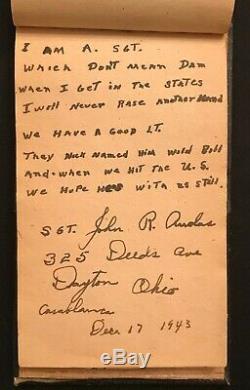 I AM A. SGT.
Which Dont mean Dam
when I Get in the States
I will Never Rase Another Hand
We Have A Good LT.
They Nick Named Him Wild Bill
And when we Hit the U.S.
We Hope Hes With us Still.
SGT. John R.
325 Deeds Ave
Dayton Ohio
Casablanca
Dec 17 1943